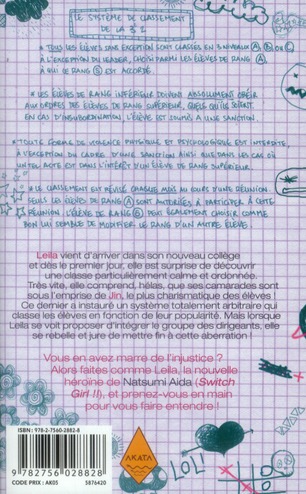 LE SYSTÈME DE CLASSEMENT
DE LA 3 2
* TOUS LES ÉLÈVES SANS EXCEPTION SONT CLASSÉS EN 3 NIVEAUX (A, B OU C)
À L'EXCEPTION DU LEADER, CHOISI PARMI LES ÉLÈVES DE RANG A
À QUI CE RANG S EST ACCORDÉ.
* LES ÉLÈVES DE RANG INFÉRIEUR DOIVENT ABSOLUMENT OBÉIR
AUX ORDRES DES ÉLÈVES DE RANG SUPÉRIEUR, QUELS QU'ILS SOIENT.
EN CAS D'INSUBORDINATION, L'ÉLÈVE EST SOUMIS À UNE SANCTION.
* TOUTE FORME DE VIOLENCE PHYSIQUE ET PSYCHOLOGIQUE EST INTERDITE,
À L'EXCEPTION DU CADRE D'UNE SANCTION AINSI QUE DANS LES CAS OÙ
UN TEL ACTE EST DANS L'INTÉRÊT D'UN ÉLÈVE DE RANG SUPÉRIEUR.
* LE CLASSEMENT EST RÉVISÉ CHAQUE MOIS AU COURS D'UNE RÉUNION.
SEULS LES ÉLÈVES DE RANG A SONT AUTORISÉS À PARTICIPER À CETTE
RÉUNION. L'ÉLÈVE DE RANG S PEUT ÉGALEMENT CHOISIR COMME
BON LUI SEMBLE DE MODIFIER LE RANG D'UN AUTRE ÉLÈVE.
Leila vient d'arriver dans son nouveau collège
et dès le premier jour, elle est surprise de découvrir
une classe particulièrement calme et ordonnée.
Très vite, elle comprend, hélas, que ses camarades sont
sous l'emprise de Jin, le plus charismatique des élèves !
Ce dernier a instauré un système totalement arbitraire qui
classe les élèves en fonction de leur popularité. Mais lorsque
Leila se voit proposer d'intégrer le groupe des dirigeants, elle
se rebelle et jure de mettre fin à cette aberration !
Vous en avez marre de l'injustice ?
Alors faites comme Leila, la nouvelle
héroïne de Natsumi Aida (Switch
Girl !!), et prenez-vous en main
pour vous faire entendre !
ISBN : 978-2-7560-2882-8
9 782756 028828
CODE PRIX : AK05 5876420
AKATA
LOLI